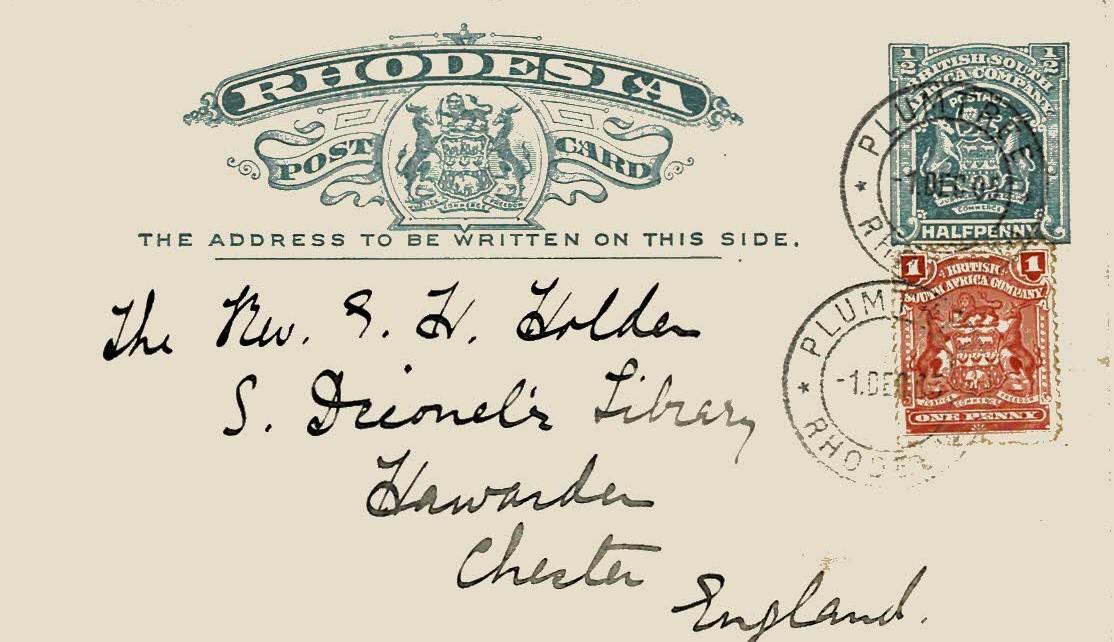 RHODESIA
POST CARD
JUSTICE COMMERCE FREEDOM
THE ADDRESS TO BE WRITTEN ON THIS SIDE.
1/2 1/2
BRITISH SOUTH
AFRICA COMPANY
POSTAGE
COMMERCE
HALFPENNY
PLUMTREE
-1.DEC 05
RH
1 1
BRITISH
SOUTH AFRICA COMPANY
JUSTICE COMMERCE FREEDOM
ONE PENNY
PLUM
-1.DEC
RHODE
The Rev. S. H. Holden
S. Deionel's Library
Hawarden
Chester
England.